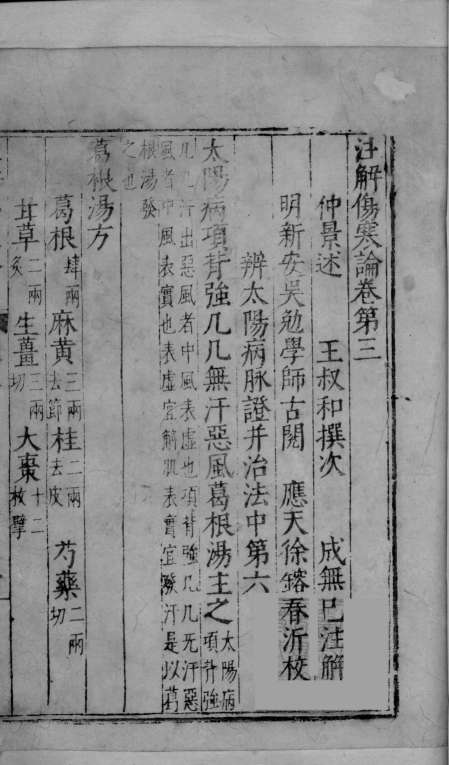 注解傷寒論卷第三
仲景述　王叔和撰次　成無已注解
明新安吳勉學師古閱　應天徐鎔春沂校
辨太陽病脉證并治法中第六
太陽病項背強几几無汗惡風葛根湯主之太陽病項背強
几几汗出惡風者中風表虛也項背強几几无汗惡
風者中風表實也表虛宜解肌表實宜發汗是以葛
根湯發
之也
葛根湯方
葛根肆兩　麻黃三兩去節　桂二兩去皮　芍藥二兩切
甘草二兩炙　生薑三兩切　大棗十二枚擘